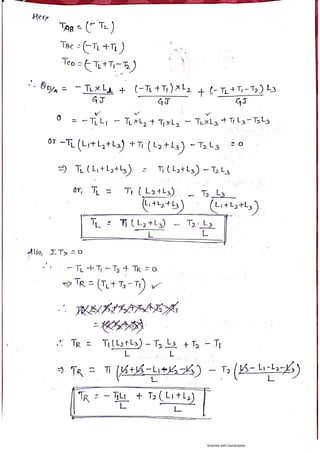 Here
T_AB = (- T_L)
T_BC = (-T_L + T_1)
T_CD = (-T_L + T_1 - T_2)
∴ θ_D/A = - T_L × L_1 / GJ + (-T_L + T_1) × L_2 / GJ + (-T_L + T_1 - T_2) L_3 / GJ
0 = - T_L L_1 - T_L × L_2 + T_1 × L_2 - T_L × L_3 + T_1 L_3 - T_2 L_3
or -T_L (L_1 + L_2 + L_3) + T_1 (L_2 + L_3) - T_2 L_3 = 0
=> T_L (L_1 + L_2 + L_3) = T_1 (L_2 + L_3) - T_2 L_3
or, T_L = T_1 (L_2 + L_3) / (L_1 + L_2 + L_3) - T_2 L_3 / (L_1 + L_2 + L_3)
T_L = T_1 (L_2 + L_3) / L - T_2 . L_3 / L
Also, ΣT_x = 0
∴ - T_L + T_1 - T_2 + T_R = 0
=> T_R = (T_L + T_2 - T_1) ✓
∴
=
∴ T_R = T_1 (L_2 + L_3) / L - T_2 L_3 / L + T_2 - T_1
=> T_R = T_1 (L_2 + L_3 - L_1 - L_2 - L_3) / L - T_2 (L_3 - L_1 - L_2 - L_3) / L
T_R = - T_1 L_1 / L + T_2 (L_1 + L_2) / L
Scanned with CamScanner